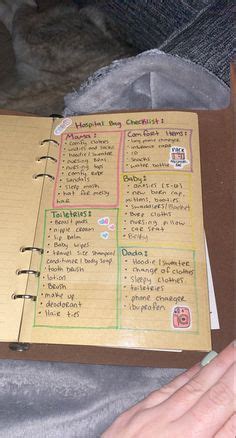 Hospital Bag Checklist:
Mama:
• comfy clothes
• undies and socks
• hoodie / sweater
• nursing bras
• nursing tops
• comfy robe
• sandals
• sleep mask
• hat for messy
hair
Comfort Items:
• long phone charger
• insurance card
• ID
• Snacks
• water bottle
PACK
Baby:
• onesies
• new born cap
mittens, booties
• Swaddles/Blanket
• Burp cloths
• nursing pillow
• car seat
• Binky
Toiletries:
• Breast pads
• nipple cream
• lip balm
• Baby wipes
• travel size shampoo
conditioner / body soap
• tooth brush
• lotion
• Brush
• make up
• deodorant
• Hair ties
Dada:
• Hoodie / sweater
• change of clothes
• sleepy clothes
• toiletries
• phone charger
• ibuprofen